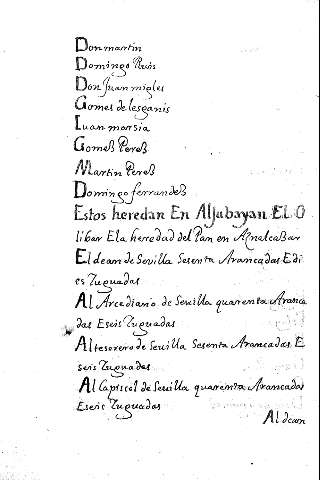 Don martin
Domingo Ruis
Don Juan migles
Gomes de lesganis
Luan marsia
Gomeß Pereß
Martin Pereß
Domingo ferrandeß
Estos heredan En Aljubayan EL O
libar E la heredad del Pan en AznalcaBar
El dean de Sevilla Sesenta Arancadas E di
es Zuguadas
Al Arcediano de Sevilla quarenta Aranca
das E seis Zuguadas
Al tesorero de Sevilla Sesenta Arancadas E
seis Zuguadas
Al Capiscol de Sevilla quarenta Arancadas
E seis Zuguadas
Al dean